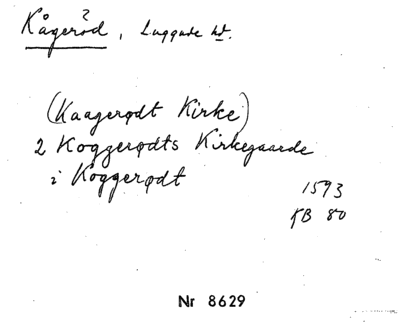 ?
Kågeröd, Luggude hd.
(Kaagerødt Kirke)
2 Koggerødts Kirkegaarde
i Koggerødt
1593
KB 80
Nr 8629